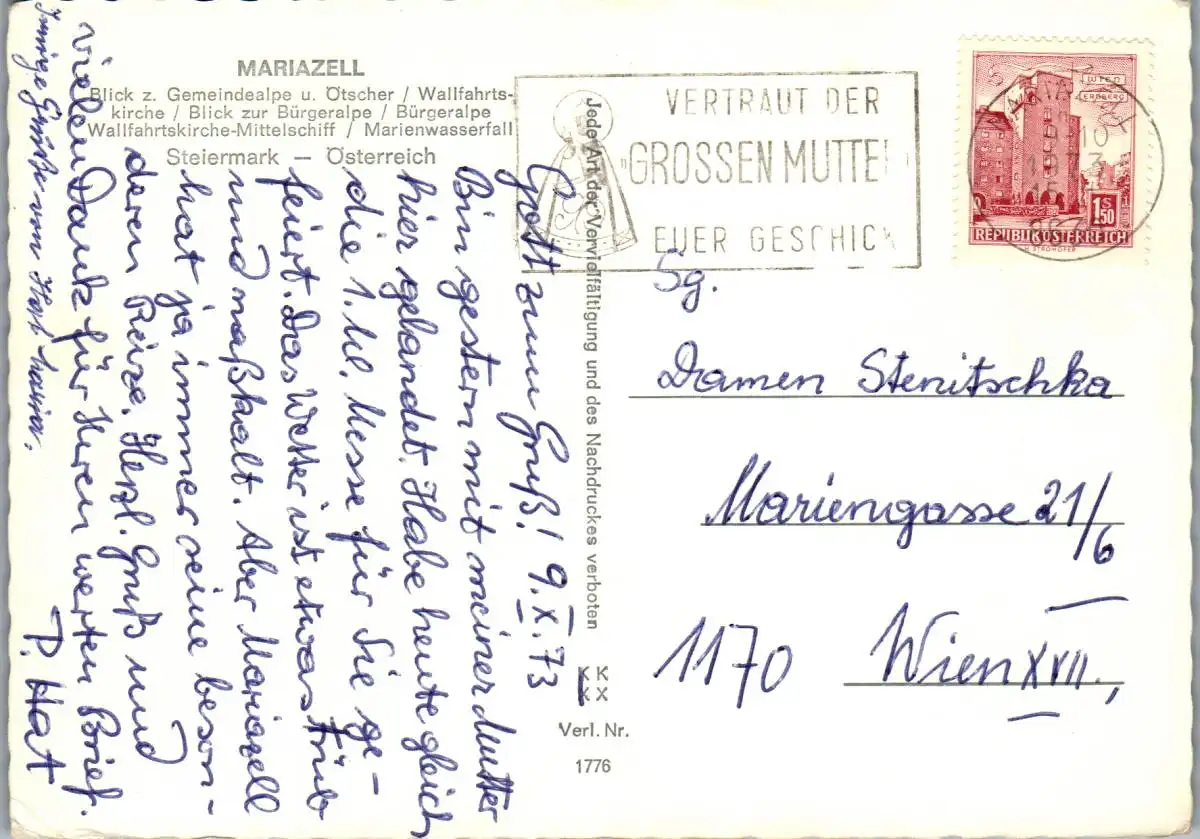 MARIAZELL
Blick z. Gemeindealpe u. Ötscher / Wallfahrts-
kirche / Blick zur Bürgeralpe / Bürgeralpe
Wallfahrtskirche-Mittelschiff / Marienwasserfall
Steiermark — Österreich
VERTRAUT DER
„GROSSEN MUTTE
EUER GESCHICK
WIEN
ERDBERG
1 S 50
REPUBLIK ÖSTERREICH
MARIAZELL
9-10
1973
Jede Art der Vervielfältigung und des Nachdruckes verboten
Grott zum Gruß! 9.X.73
Bin gestern mit meiner Mutter
hier gelandet. Habe heute gleich
die 1. hl. Messe für Sie ge-
feiert. Das Wetter ist etwas trüb
und naßkalt. Aber Mariazell
hat ja immer seine beson-
deren Reize. Herzl. Gruß und
vielen Dank für Ihren werten Brief.
P. Hat
Innige Grüße von
Sg.
Damen Stenitschka
Mariengasse 21/6
1170 Wien XVII.,
KK
KX
Verl. Nr.
1776